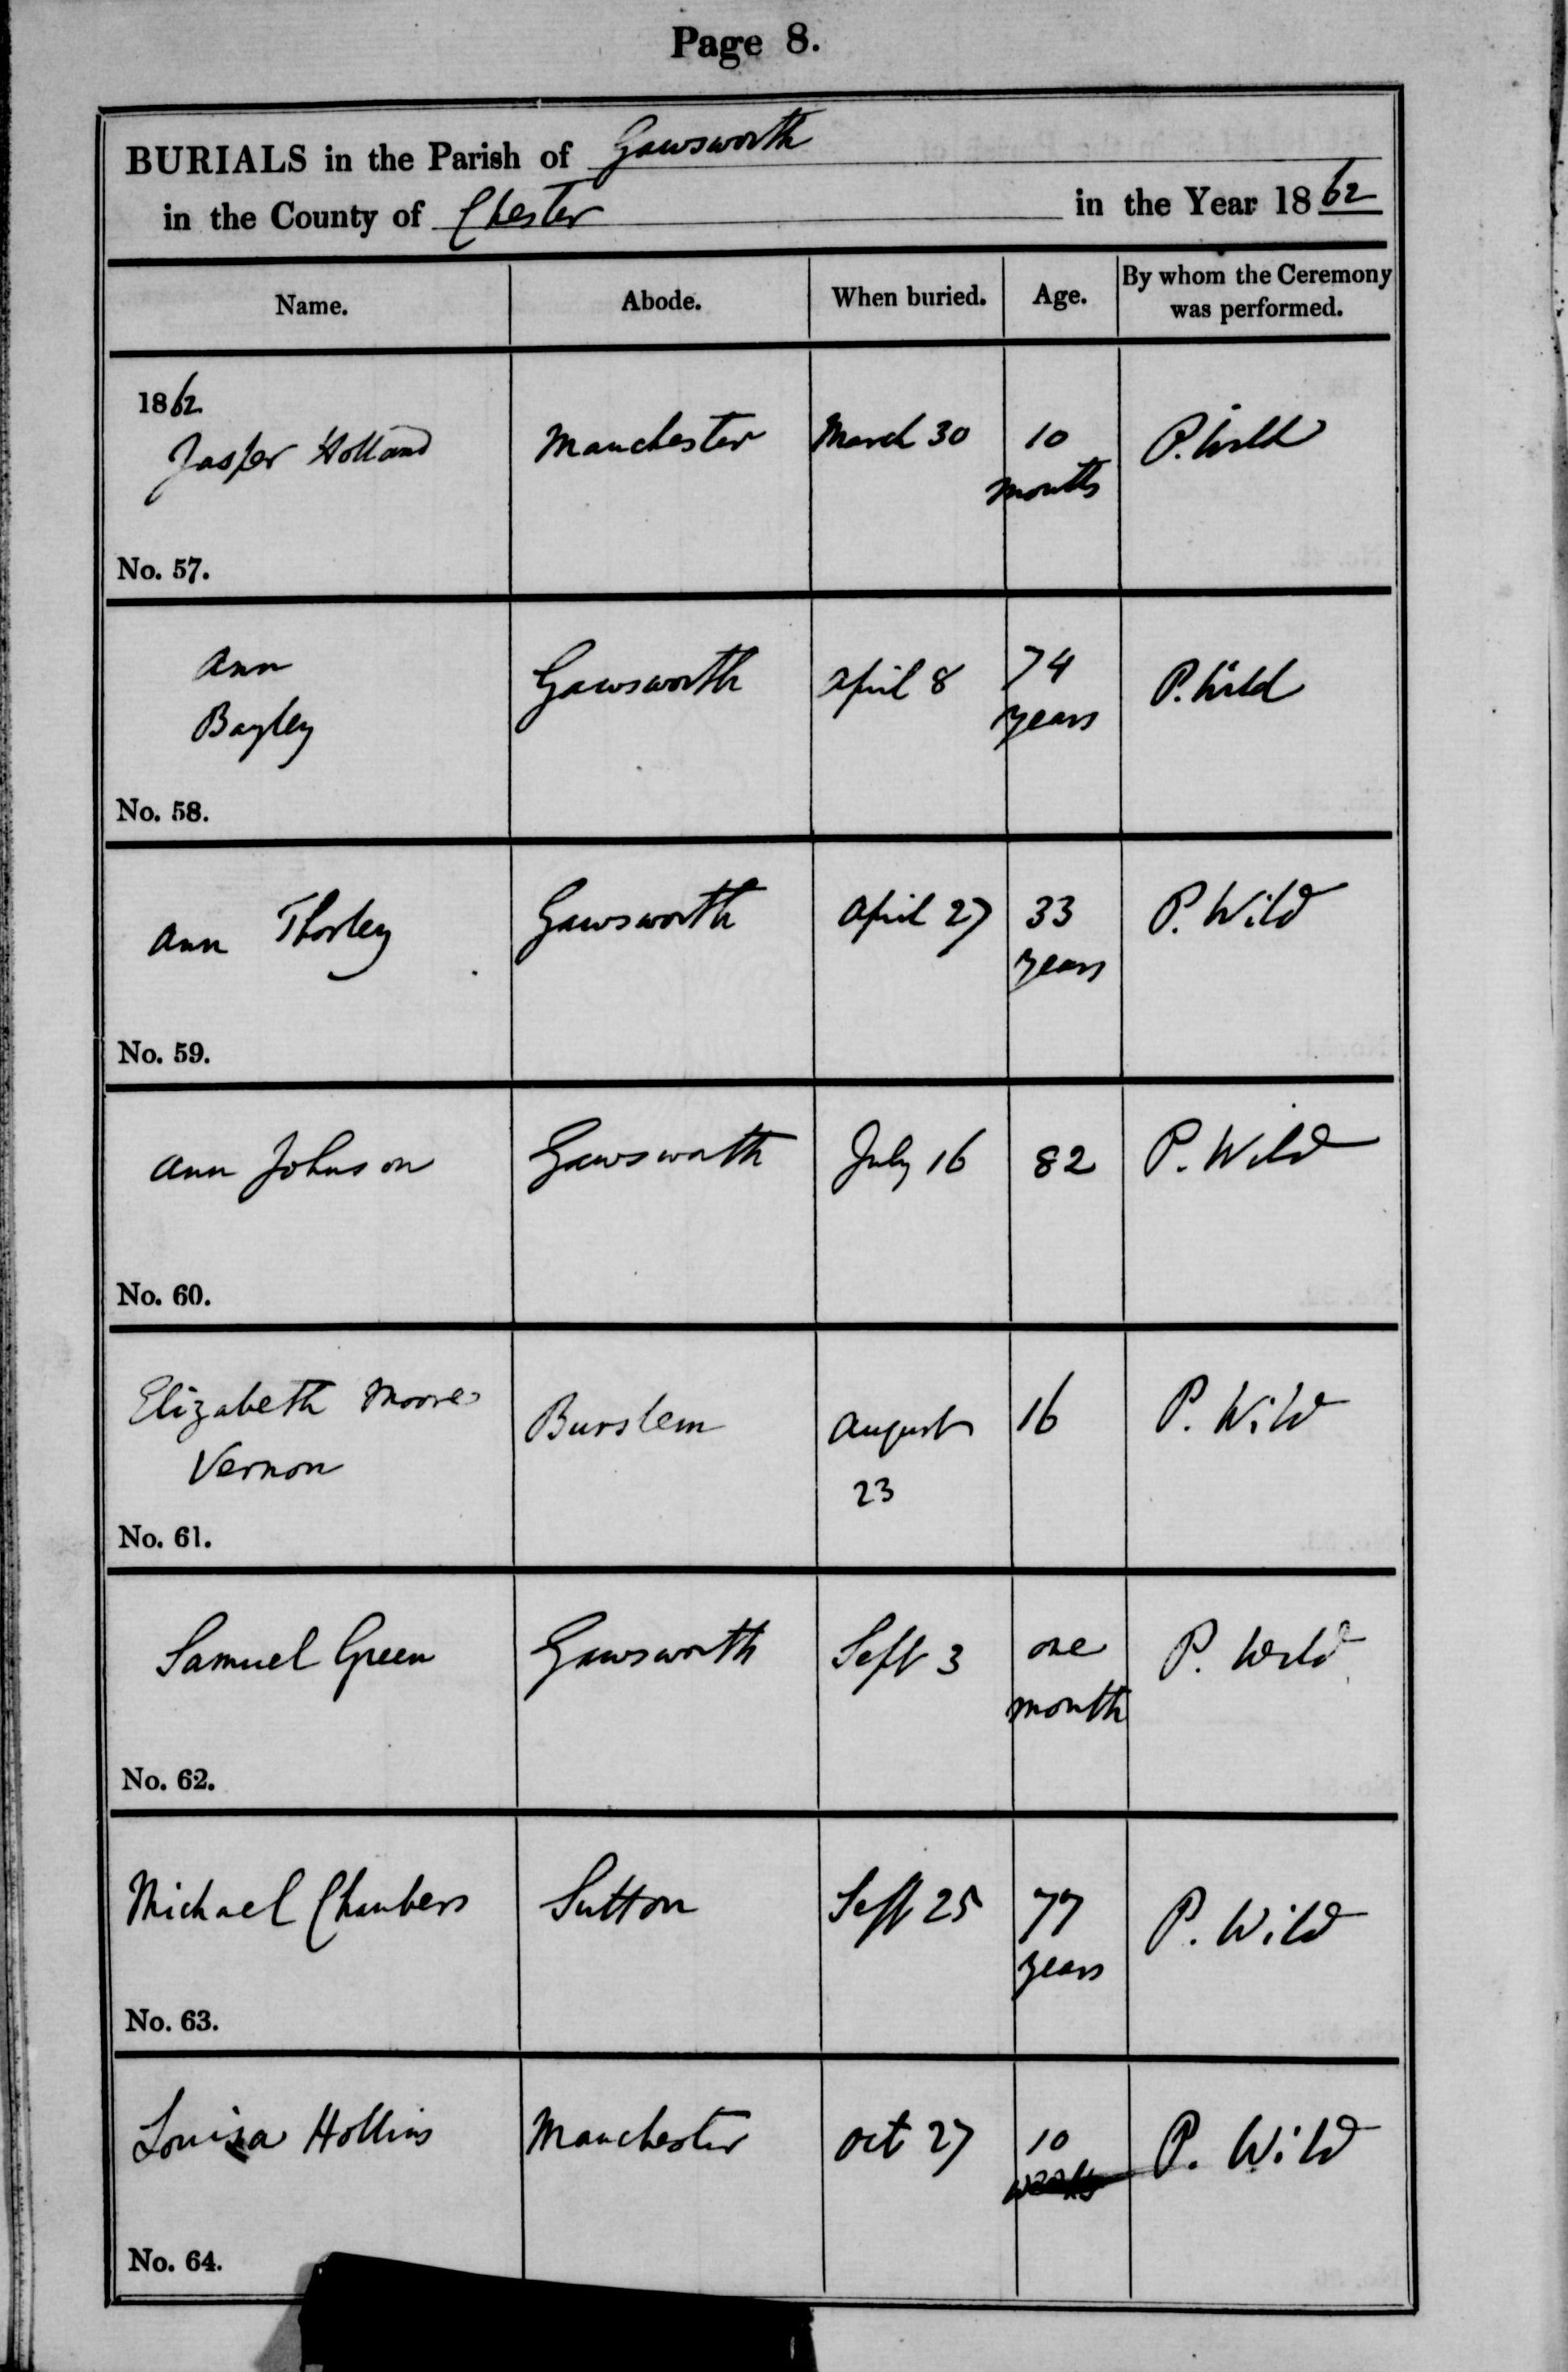 Page 8.
BURIALS in the Parish of Gawsworth
in the County of Chester in the Year 1862
Name. Abode. When buried. Age. By whom the Ceremony was performed.
1862
Jasper Holland Manchester March 30 10 months P. Wild
No. 57.
Ann Bayley Gawsworth April 8 74 years P. Wild
No. 58.
Ann Thorley Gawsworth April 27 33 years P. Wild
No. 59.
Ann Johnson Gawsworth July 16 82 P. Wild
No. 60.
Elizabeth Moores Vernon Burslem August 23 16 P. Wild
No. 61.
Samuel Green Gawsworth Sept 3 one month P. Wild
No. 62.
Michael Chambers Sutton Sept 25 77 years P. Wild
No. 63.
Louisa Hollins Manchester Oct 27 10 weeks P. Wild
No. 64.